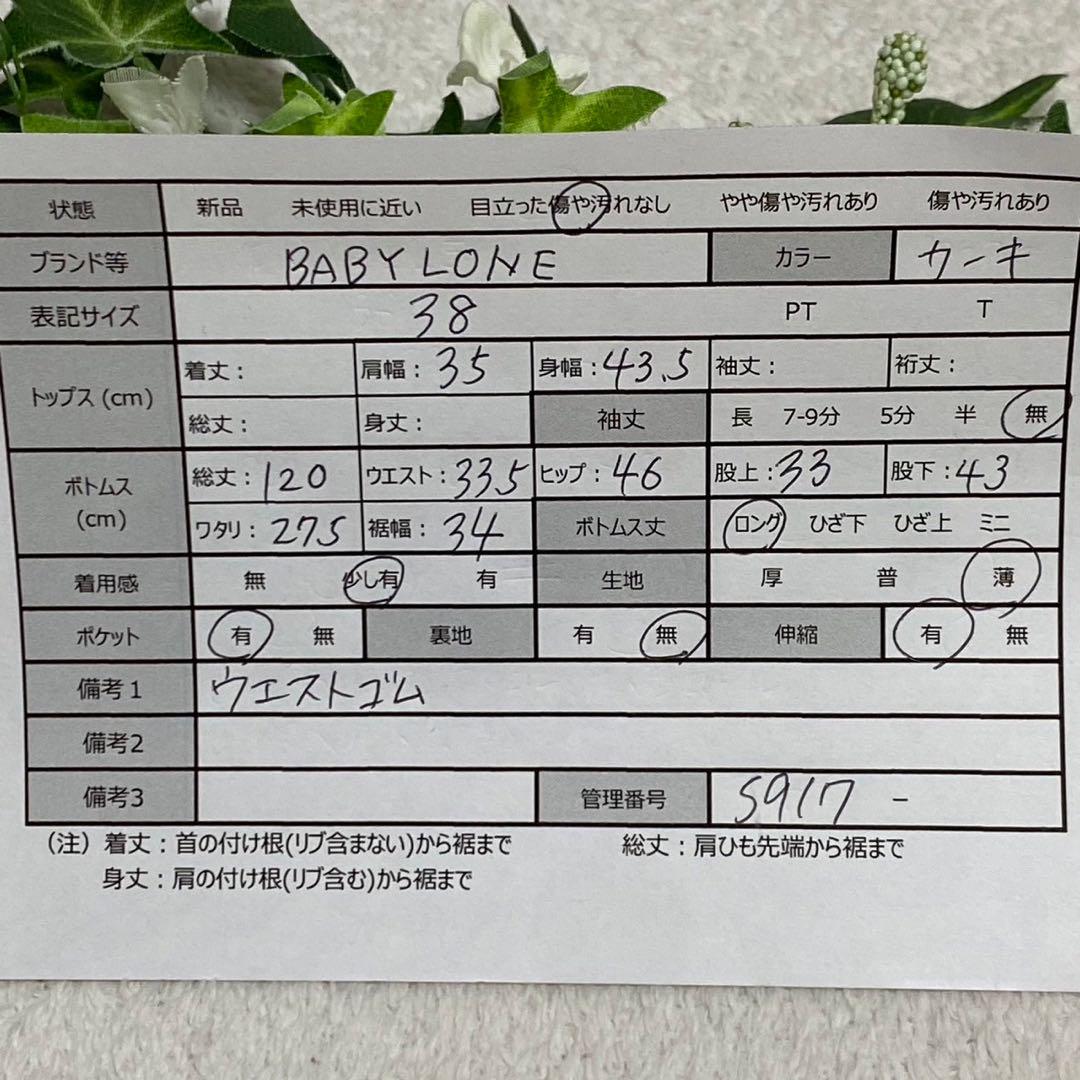 状態 新品 未使用に近い 目立った傷や汚れなし やや傷や汚れあり 傷や汚れあり
ブランド等 BABYLONE カラー カーキ
表記サイズ 38 PT T
トップス (cm) 着丈: 肩幅: 35 身幅: 43.5 袖丈: 裄丈:
総丈: 身丈: 袖丈 長 7-9分 5分 半 無
ボトムス (cm) 総丈: 120 ウエスト: 33.5 ヒップ: 46 股上: 33 股下: 43
ワタリ: 27.5 裾幅: 34 ボトムス丈 ロング ひざ下 ひざ上 ミニ
着用感 無 少し有 有 生地 厚 普 薄
ポケット 有 無 裏地 有 無 伸縮 有 無
備考1 ウエストゴム
備考2
備考3 管理番号 S917 -
(注) 着丈:首の付け根(リブ含まない)から裾まで 総丈:肩ひも先端から裾まで
身丈:肩の付け根(リブ含む)から裾まで